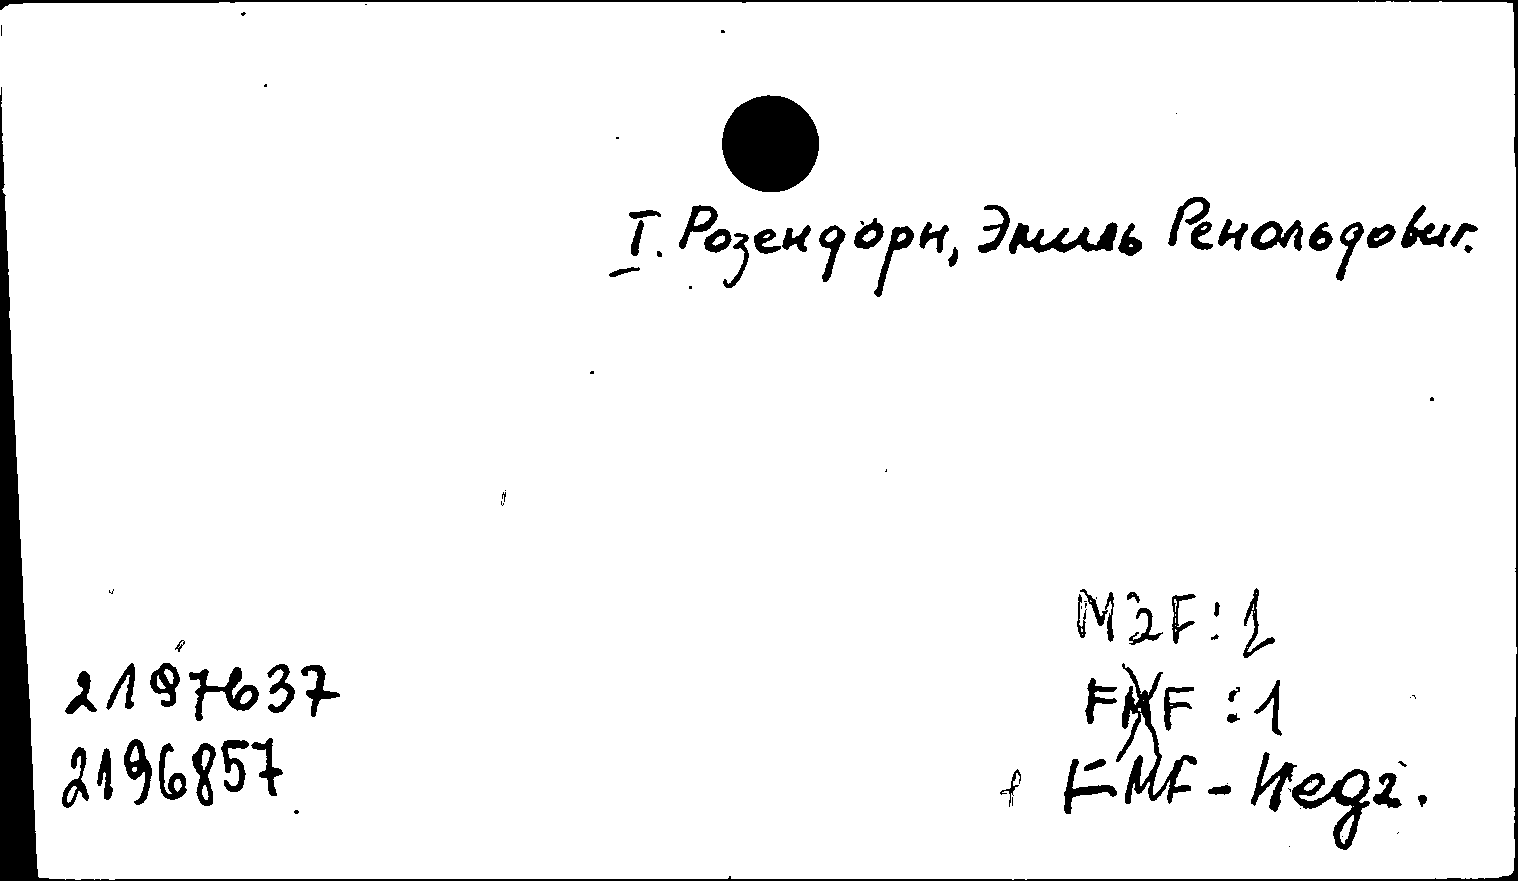 I. Розендорн, Эмиль Ренольдовиг.
M2F: 1
2197637
FMF : 1
2196857
FMF - Недг.